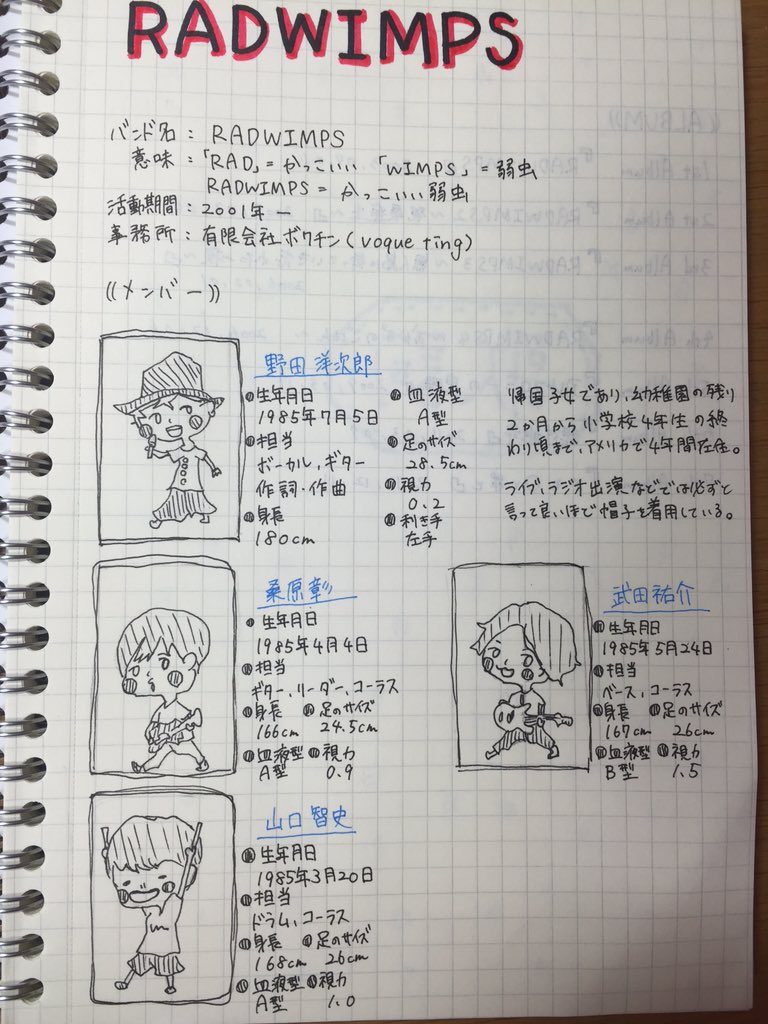 RADWIMPS
バンド名：RADWIMPS
意味：「RAD」=かっこいい 「WIMPS」=弱虫
RADWIMPS = かっこいい弱虫
活動期間：2001年ー
事務所：有限会社ボクチン(voque ting)
((メンバー))
野田 洋次郎
生年月日
1985年7月5日
担当
ボーカル、ギター
作詞・作曲
身長
180cm
血液型
A型
足のサイズ
28.5cm
視力
0.2
利き手
左手
帰国子女であり、幼稚園の残り
2か月から小学校4年生の終
わり頃まで、アメリカで4年間在住。
ライブ、ラジオ出演などでは必ずと
言って良いほど帽子を着用している。
桑原彰
生年月日
1985年4月4日
担当
ギター、リーダー、コーラス
身長 足のサイズ
166cm 24.5cm
血液型 視力
A型 0.9
武田祐介
生年月日
1985年5月24日
担当
ベース、コーラス
身長 足のサイズ
167cm 26cm
血液型 視力
B型 1.5
山口智史
生年月日
1985年3月20日
担当
ドラム、コーラス
身長 足のサイズ
168cm 26cm
血液型 視力
A型 1.0